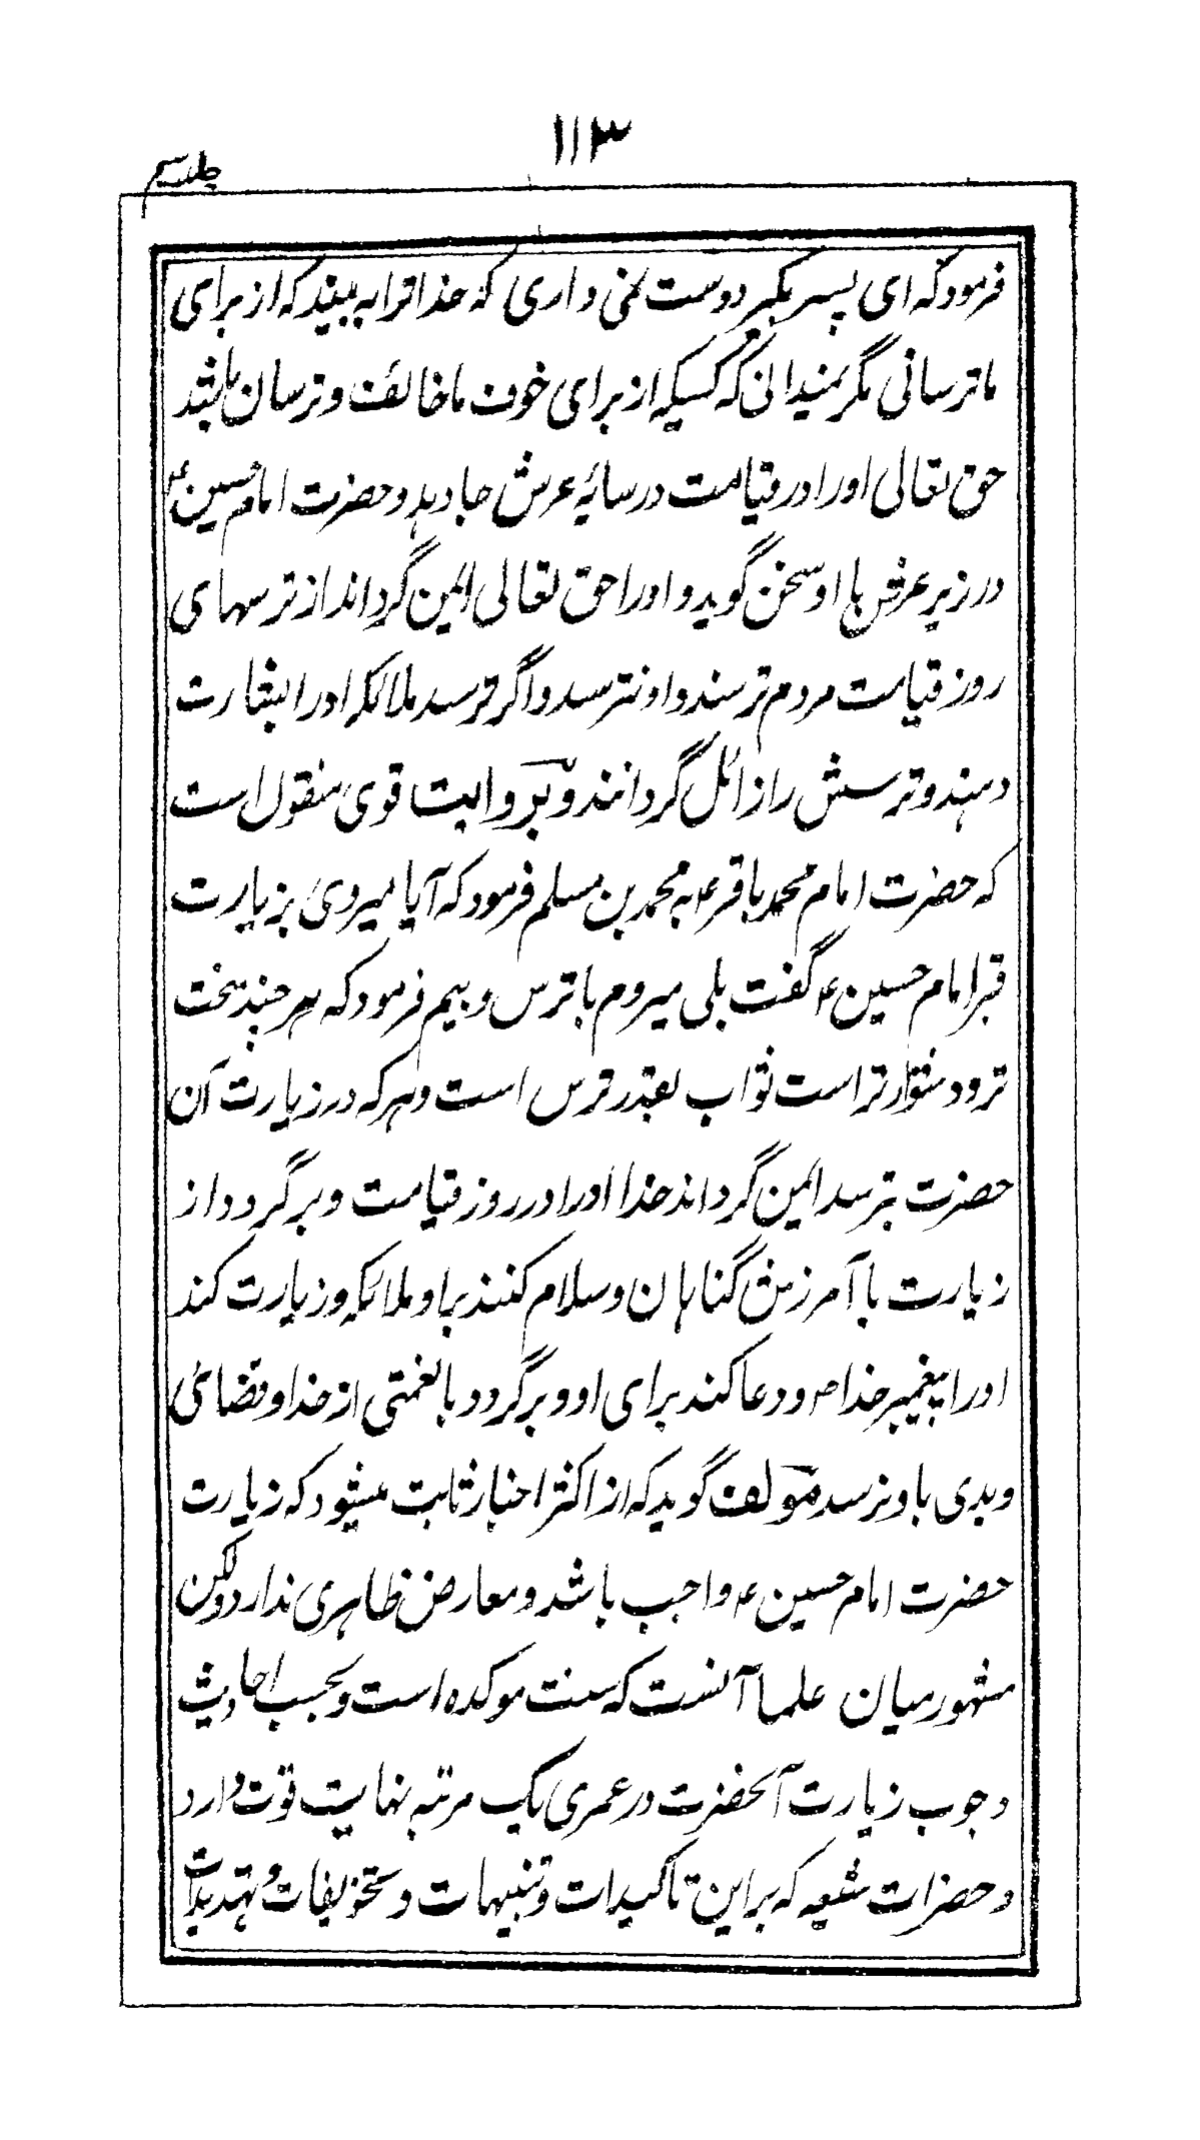 ۱۱۳
جلد سیم
فرمود که ای پسر بکیر دوست نمی داری که خدا ترا به بیند که از برای
ما ترسانی مگر نمیدانی که کسیکه از برای خوف ما خائف و ترسان باشد
حق تعالی اورا در قیامت در سایهٔ عرش جا دهد و حضرت امام حسین ع
در زیر عرش با او سخن گوید و اورا حق تعالی ایمن گرداند از ترسهای
روز قیامت مردم ترسند و او نترسد و اگر ترسد ملائکه اورا بشارت
دهند و ترسش را زائل گردانند و بروایت قوی منقول است
که حضرت امام محمد باقر ع به محمد بن مسلم فرمود که آیا میروی بزیارت
قبر امام حسین ع گفت بلی میروم با ترس و بیم فرمود که هر چند سخت
تر و دشوارتر است ثواب بقدر ترس است و هر که در زیارت آن
حضرت بترسد ایمن گرداند خدا اورا در روز قیامت و برگردد از
زیارت با آمرزش گناهان و سلام کنند بر او ملائکه و زیارت کند
اورا پیغمبر خدا ص و دعا کند برای او و برگردد با نعمتی از خدا و فضائی
وبدی باو نرسد مؤلف گوید که از اکثر اخبار ثابت میشود که زیارت
حضرت امام حسین ع واجب باشد و معارض ظاهری ندارد ولکن
مشهور میان علما آنست که سنت موکده است و بحسب احادیث
وجوب زیارت آنحضرت در عمری یک مرتبه نهایت قوت دارد
و حضرات شیعه که براین تاکیدات و تنبیهات و تخویفات و تهدیدات